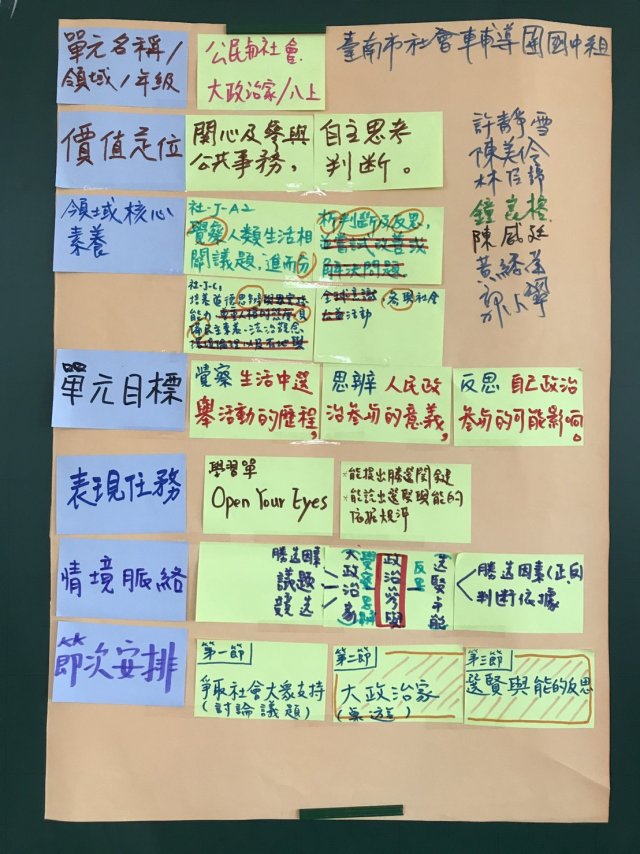 單元名稱/
領域/年級
公民與社會
大政治家/八上
臺南市社會
輔導團國中組
許靜雪
陳美伶
陳威廷
價值定位
關心及參與
公共事務,
自主思考
判斷。
領域核心
素養
社-J-A2
覺察人類生活相
關議題,進而分
析判斷及反思,
並嘗試改善或
解決問題
社-J-C1
培養道德思辨與實踐
能力、尊重人權的態度,具
備民主素養、法治觀念、
參與社會
公益活動
單元目標
覺察 生活中選
舉活動的歷程,
思辨 人民政
治參與的意義,
反思 自己政治
參與的可能影響。
表現任務
學習單
Open Your Eyes
*能提出勝選關鍵
*能說出選賢與能的
依據規評
情境脈絡
勝選因素
議題
競選
大政治家
覺察思辨
政治參與
反思
選賢與能
勝選因素(正負)
判斷依據
節次安排
第一節
爭取社會大眾支持
(討論議題)
第二節
大政治家
(桌遊)
第三節
選賢與能的反思